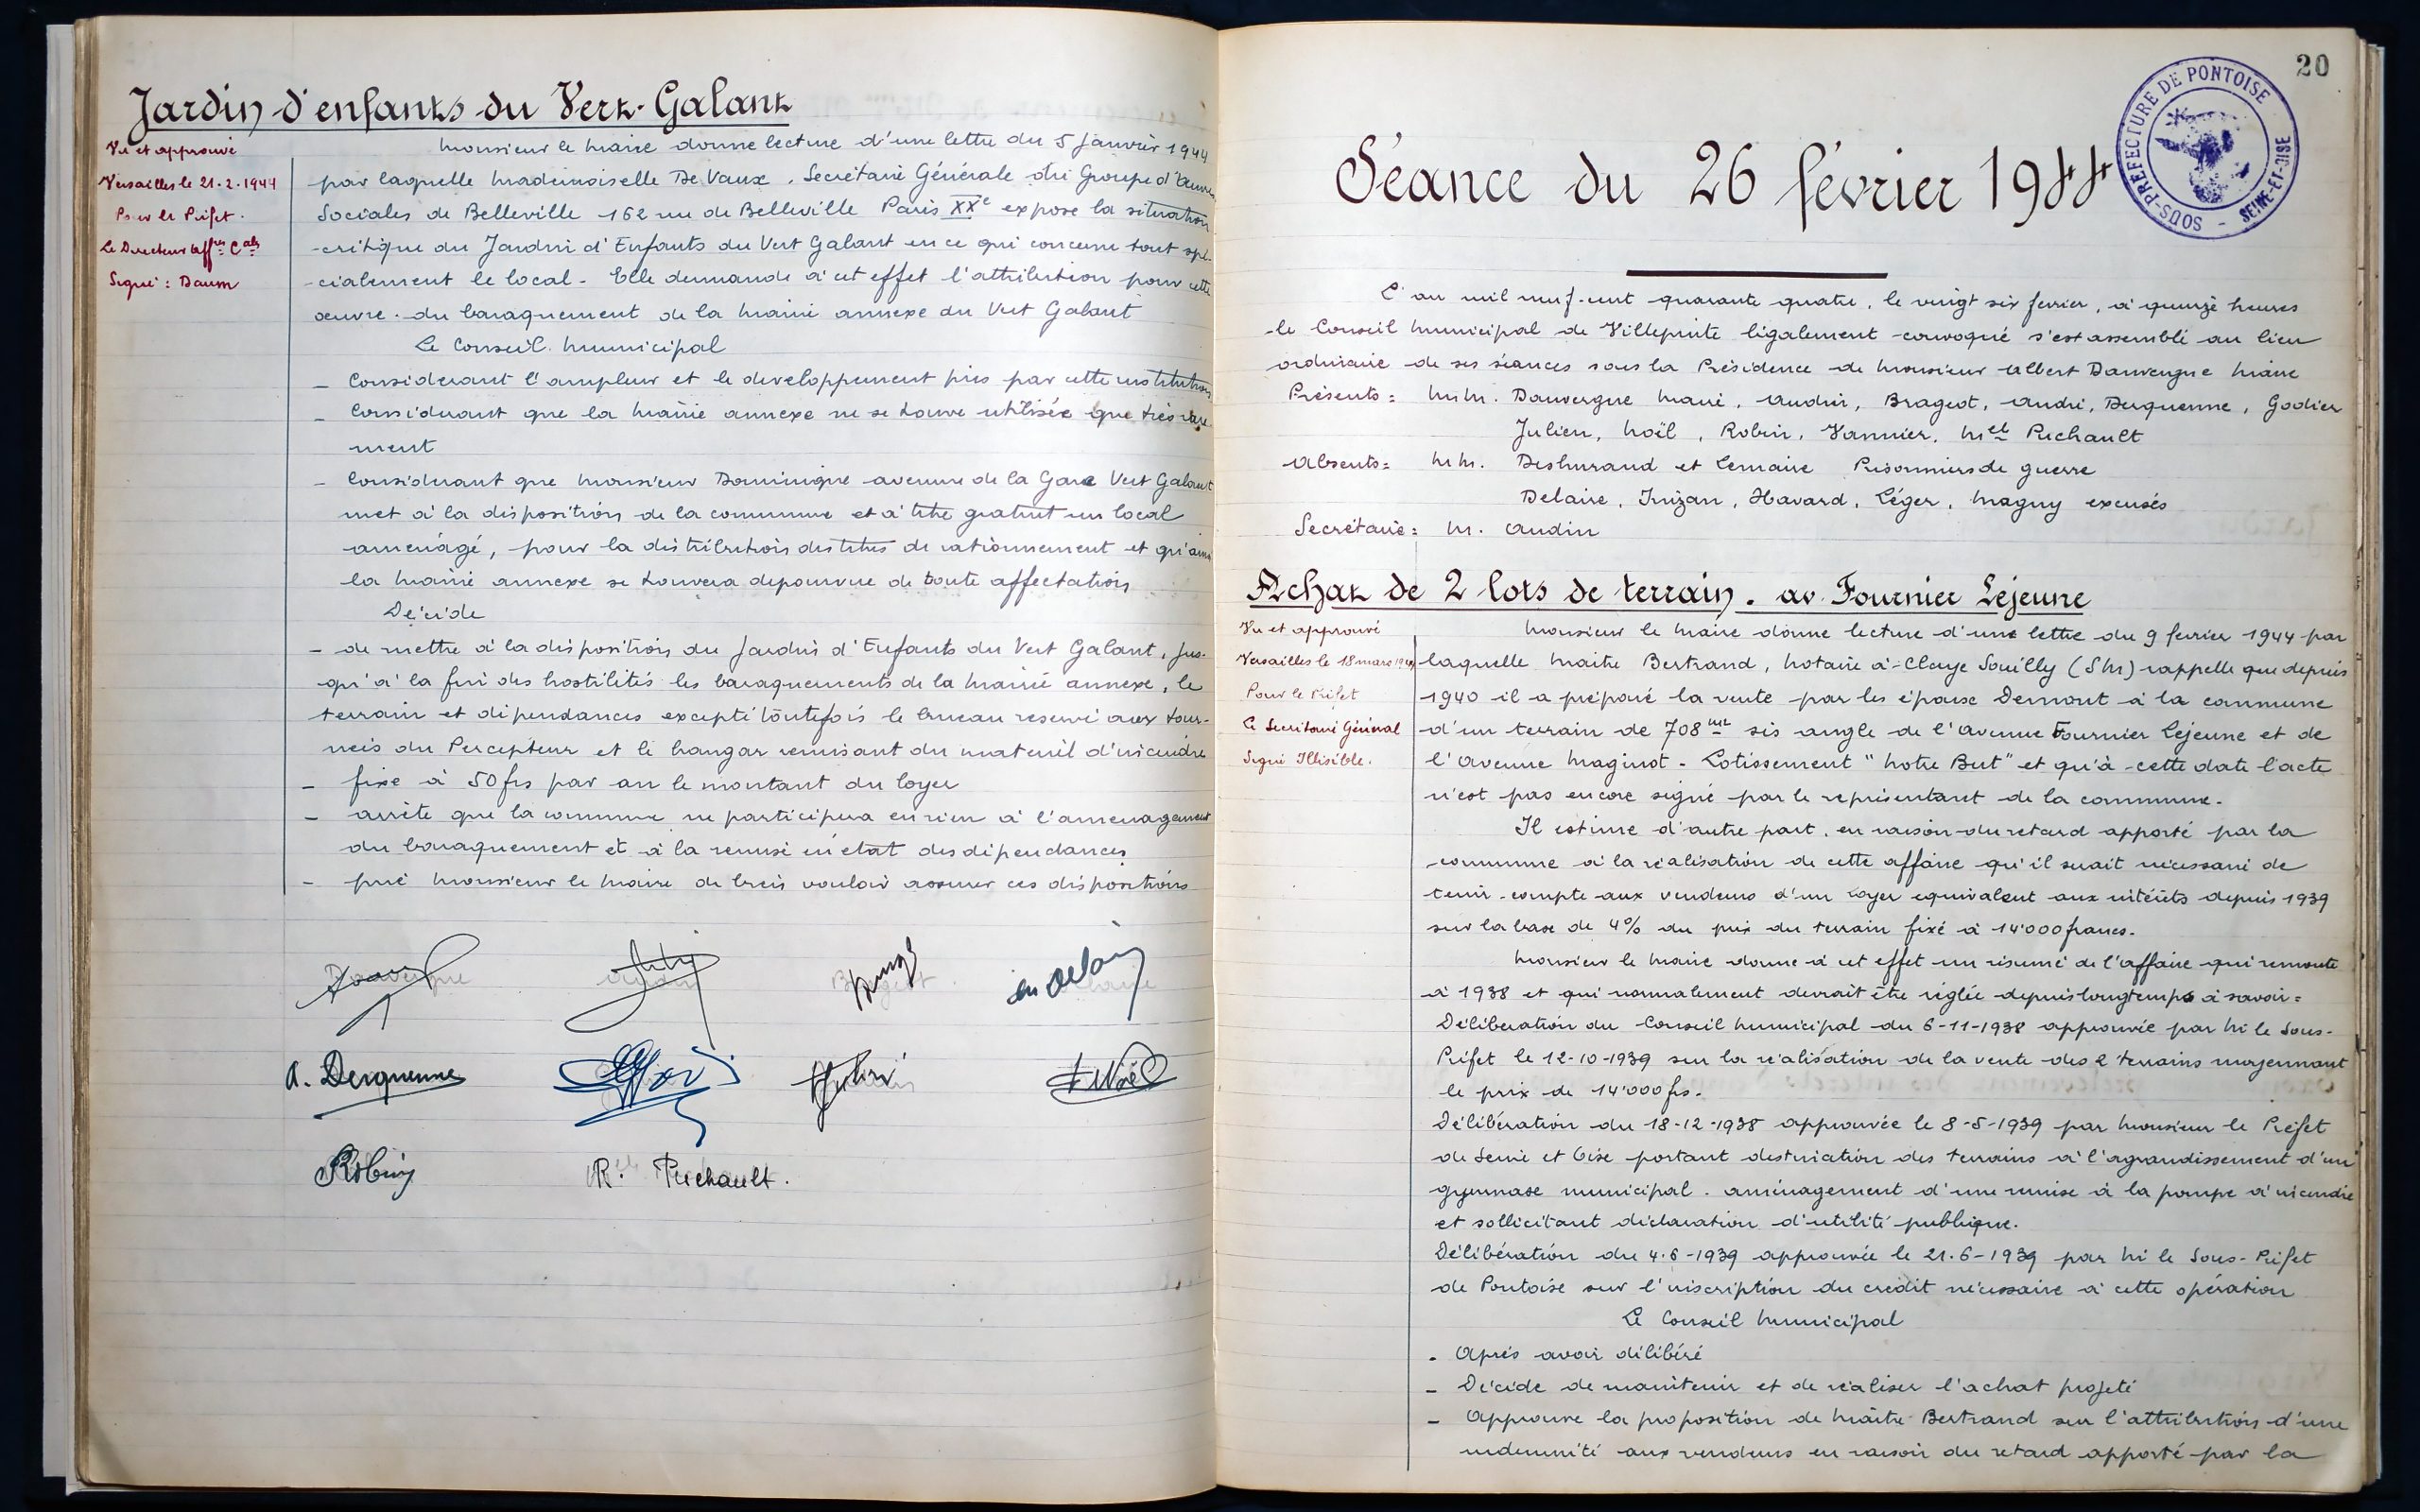 Jardin d'enfants du Vert-Galant
Vu et approuvé
Versailles le 21.2.1944
Pour le Préfet.
Le Directeur Aff.res C.ales
Signé : Daum
Monsieur le Maire donne lecture d'une lettre du 5 Janvier 1944
par laquelle Mademoiselle De Vaux, Secrétaire Générale du Groupe d'Œuvres
Sociales de Belleville 162 rue de Belleville Paris XXe expose la situation
critique du Jardin d'Enfants du Vert Galant en ce qui concerne tout spé-
cialement le local - Elle demande à cet effet l'attribution pour cette
œuvre du baraquement de la Mairie annexe du Vert Galant
Le Conseil Municipal
- Considerant l'ampleur et le developpement pris par cette institution
- Considerant que la Mairie annexe ne se trouve utilisée que très rare
ment
- Considerant que Monsieur Dominique avenue de la Gare Vert Galant
met à la disposition de la commune et à titre gratuit un local
aménagé, pour la distribution des titres de rationnement et qu'ainsi
la Mairie annexe se trouvera depourvue de toute affectation
Décide
- de mettre à la disposition du Jardin d'Enfants du Vert Galant, jus-
qu'à la fin des hostilités les baraquements de la Mairie annexe, le
terrain et dépendances excepté toutefois le bureau reservé aux tour-
nées du Percepteur et le hangar remisant du matériel d'incendie
- fixe à 50 frs par an le montant du loyer
- arrête que la commune ne participera en rien à l'amenagement
du baraquement et à la remise en état des dépendances
- prie Monsieur le Maire de bien vouloir assurer ces dispositions
Dauvergne Audin Brageot Delaire
A. Derquenne Julien Noël
Robin R. Pichault.
20
SOUS-PREFECTURE DE PONTOISE
SEINE-ET-OISE
Séance du 26 février 1944
L'an mil neuf-cent quarante quatre, le vingt six fevrier, à quinze heures
le Conseil Municipal de Villepinte légalement convoqué s'est assemblé au lieu
ordinaire de ses séances sous la Présidence de Monsieur Albert Dauvergne Maire
Présents = MM. Dauvergne Maire, Audin, Brageot, André, Derquenne, Godier
Julien, Noël, Robin, Vannier, Mell Pichault
Absents = MM. Deshurand et Lemaire Prisonniers de guerre
Delaire, Inizan, Havard, Léger, Magny excusés
Secrétaire = M. Audin
Achat de 2 lots de terrain. av. Fournier Lejeune
Vu et approuvé
Versailles le 18 mars 1944
Pour le Préfet
Le Secrétaire Général
Signé Illisible.
Monsieur le Maire donne lecture d'une lettre du 9 fevrier 1944 par
laquelle Maître Bertrand, Notaire à Claye Souilly (SM) rappelle que depuis
1940 il a préparé la vente par les époux Demont à la commune
d'un terrain de 708 m2 sis angle de l'Avenue Fournier Lejeune et de
l'Avenue Maginot - Lotissement "Notre But" et qu'à cette date l'acte
n'est pas encore signé par le représentant de la commune.
Il estime d'autre part, en raison du retard apporté par la
commune à la réalisation de cette affaire qu'il serait nécessaire de
tenir compte aux vendeurs d'un loyer equivalent aux intérêts depuis 1939
sur la base de 4% du prix du terrain fixé à 14'000 francs.
Monsieur le Maire donne à cet effet un résumé de l'affaire qui remonte
à 1938 et qui normalement devrait être réglée depuis longtemps à savoir =
Délibération du Conseil Municipal du 6-11-1938 approuvée par M le Sous-
Préfet le 12-10-1939 sur la réalisation de la vente des 2 terrains moyennant
le prix de 14'000 frs.
Délibération du 18-12-1938 approuvée le 8-5-1939 par Monsieur le Préfet
de Seine et Oise portant destination des terrains à l'agrandissement d'un
gymnase municipal. aménagement d'une remise à la pompe à incendie
et sollicitant déclaration d'utilité publique.
Délibération du 4.6-1939 approuvée le 21.6-1939 par M le Sous-Préfet
de Pontoise sur l'inscription du crédit nécessaire à cette opération
Le Conseil Municipal
- Après avoir délibéré
- Décide de maintenir et de réaliser l'achat projeté
- Approuve la proposition de Maître Bertrand sur l'attribution d'une
indemnité aux vendeurs en raison du retard apporté par la